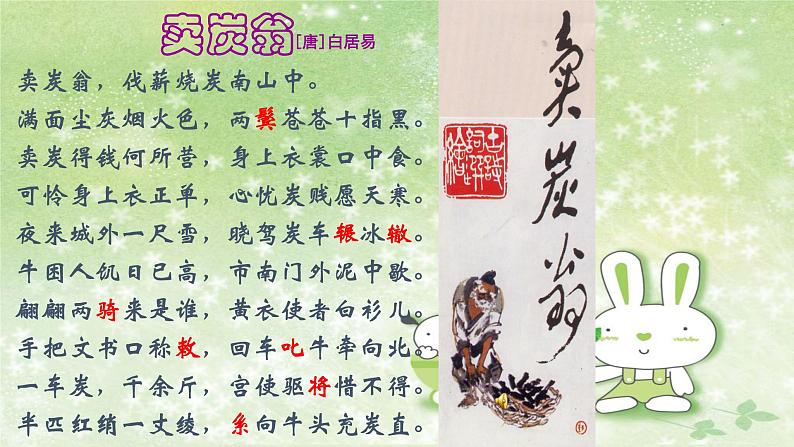 卖炭翁[唐]白居易
卖炭翁，伐薪烧炭南山中。
满面尘灰烟火色，两鬓苍苍十指黑。
卖炭得钱何所营，身上衣裳口中食。
可怜身上衣正单，心忧炭贱愿天寒。
夜来城外一尺雪，晓驾炭车辗冰辙。
牛困人饥日已高，市南门外泥中歇。
翩翩两骑来是谁，黄衣使者白衫儿。
手把文书口称敕，回车叱牛牵向北。
一车炭，千余斤，宫使驱将惜不得。
半匹红绡一丈绫，系向牛头充炭直。
賣炭翁